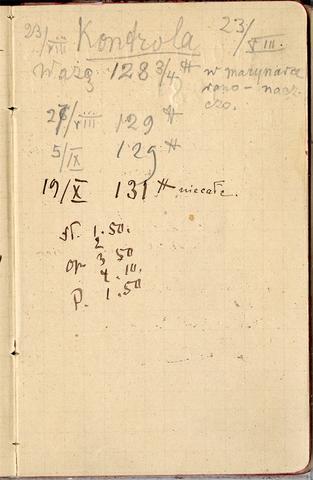 23/VIII Kontrola 23/VIII.
Ważę 128 3/4 ℔ w marynarce
rano - nacz-
czo.
27/VIII 129 ℔
5/IX 129 ℔
19/X 131 ℔ niecałe.
st. 1.50.
2
op 3 50
4.10.
p. 1.50